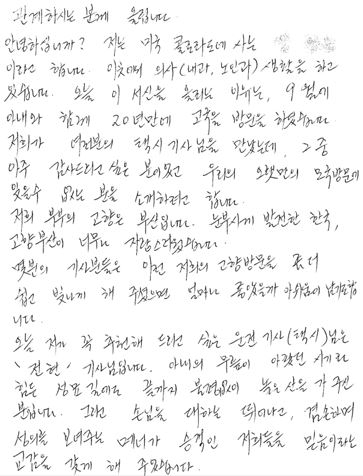 관계하시는 분께 올립니다.
안녕하십니까? 저는 미국 콜로라도에 사는
이라고 합니다. 의사(내과, 노인과) 생활을 하고
있습니다. 오늘 이 서신을 올리는 이유는, 9월에
아내와 함께 20년만에 고국을 방문을 하였습니다
저희가 여러분의 택시기사님을 만났는데, 그중
아주 감사드리고 싶은 분이있고 우리의 오랫만의 모국방문에
잊을수 없는 분을 소개하려고 합니다.
저희 부부의 고향은 부산입니다. 눈부시게 발전한 한국,
고향부산이 너무나 자랑스러웠습니다.
몇분의 기사분들은 이런 저희의 고향방문을 좀 더
쉽고 빛나게 해 주셨으면 얼마나 좋았을까 아쉬움이 남기도합
니다.
오늘 제가 꼭 추천해 드리고 싶은 운전기사(택시)님은
"전현" 기사님입니다. 아내의 무릎이 아팠던 시기라
힘든 성묘길에도 끝까지 불평없이 높은 산을 가 주신
분입니다. 그리고 손님을 대하는 뛰어나고, 겸손하며
성의를 보여주는 매너가 승객인 저희들을 믿음이라는
교감을 갖게 해 주었습니다.